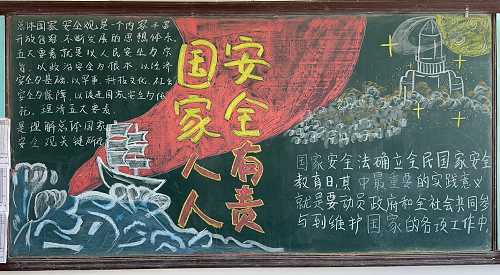 总体国家安全观是一个内容丰富
开放包容不断发展的思想体系
五大要素就是以人民安全为宗
旨,以政治安全为根本,以经济
安全为基础,以军事、科技文化、社会
安全为保障,以促进国际安全为依
托,理清五大要素,
是理解总体国家
安全观关键所在
国家安全
人人有责
国家安全法确立全民国家安全
教育日,其中最重要的实践意义
就是要动员政府和全社会共同参
与到维护国家的各项工作中,